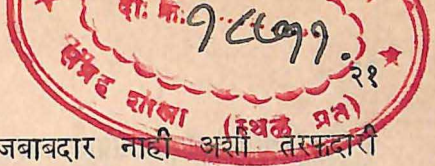 दाः क्रः १८७१
२१
संग्रह शाखा (स्थळ प्रत)
जबाबदार नाही अशी तरफदारी